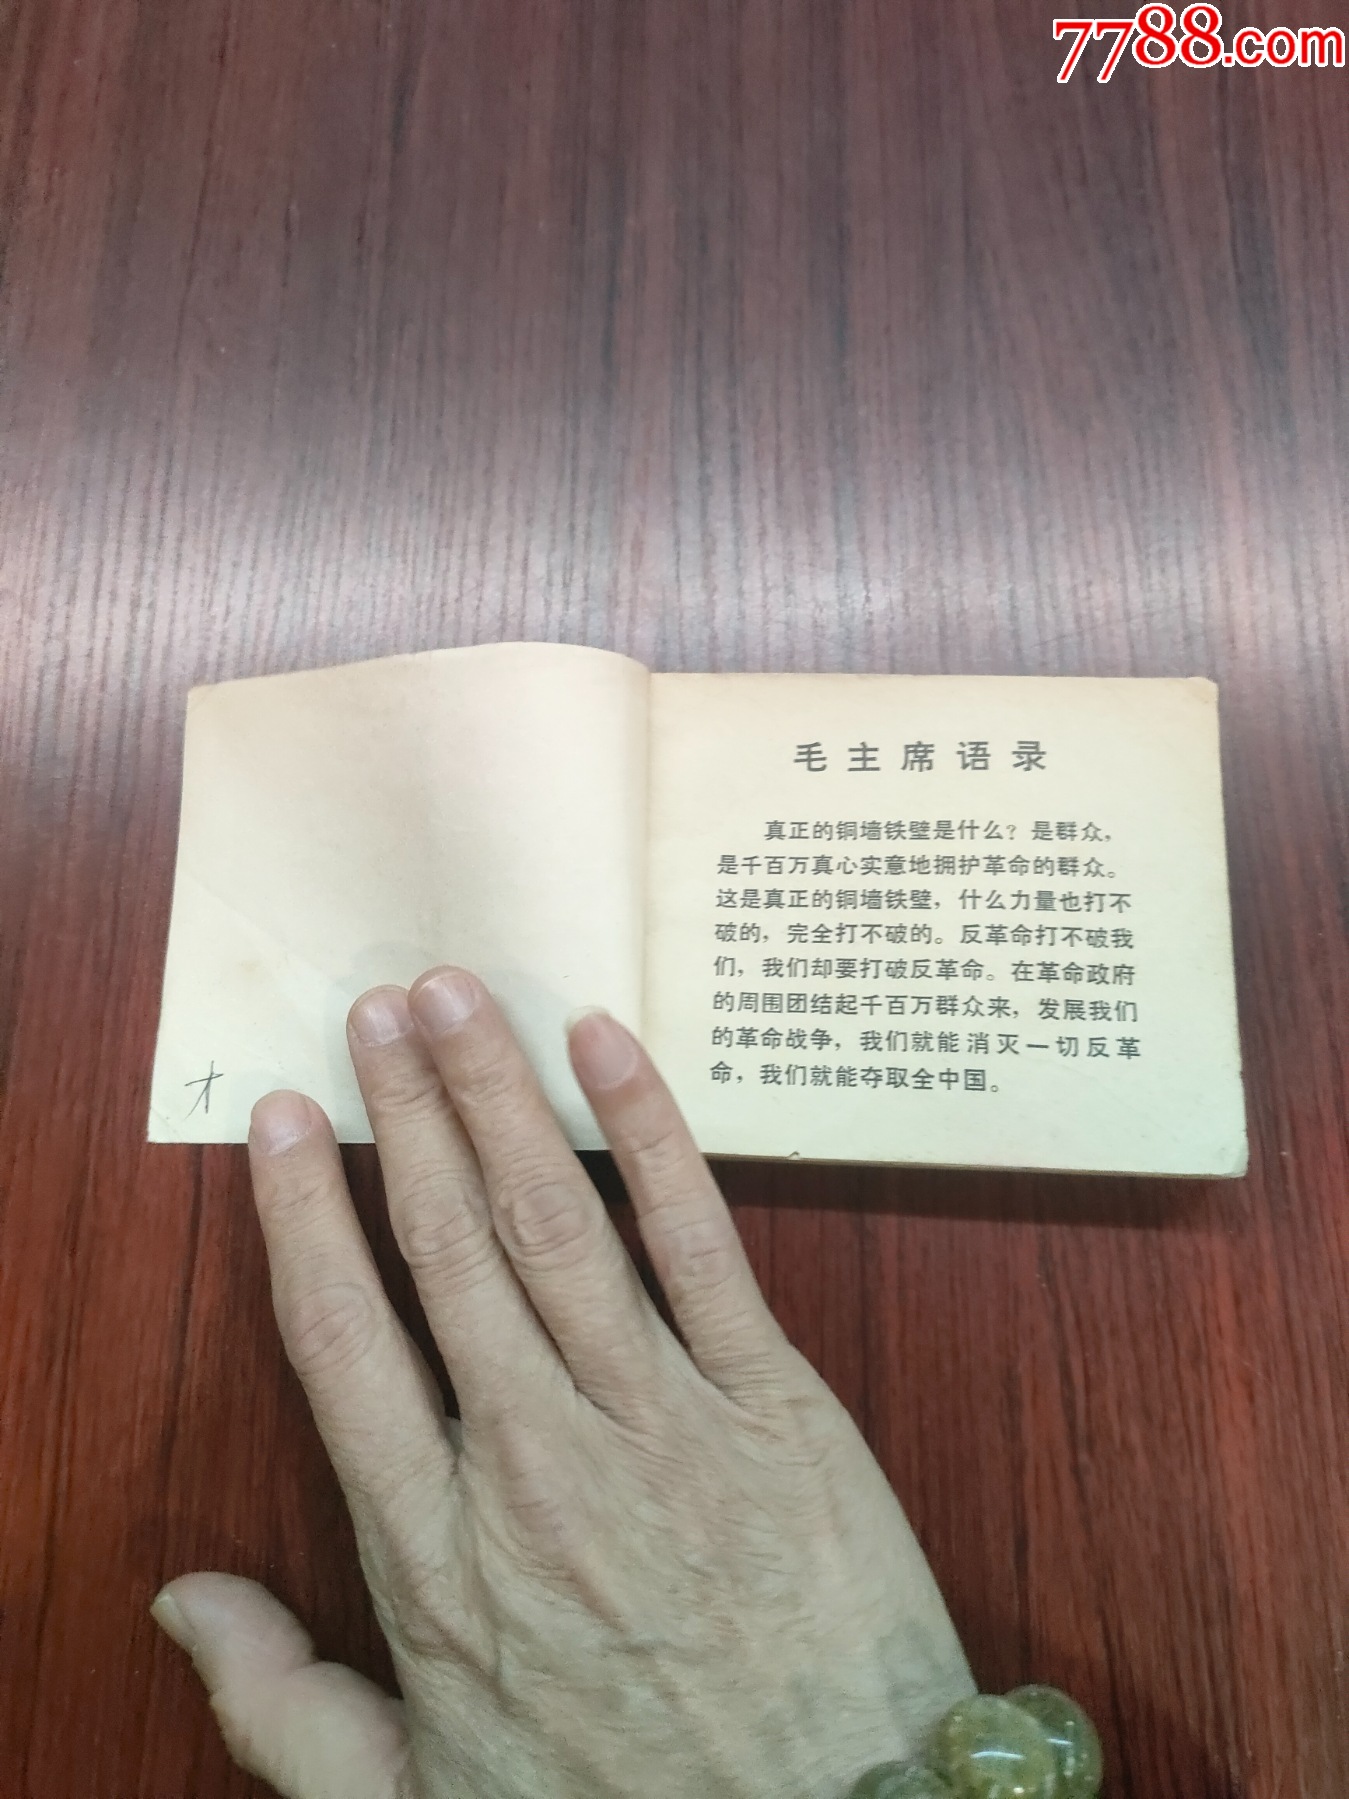 7788.com
毛主席语录
真正的铜墙铁壁是什么？是群众，
是千百万真心实意地拥护革命的群众。
这是真正的铜墙铁壁，什么力量也打不
破的，完全打不破的。反革命打不破我
们，我们却要打破反革命。在革命政府
的周围团结起千百万群众来，发展我们
的革命战争，我们就能消灭一切反革
命，我们就能夺取全中国。
才